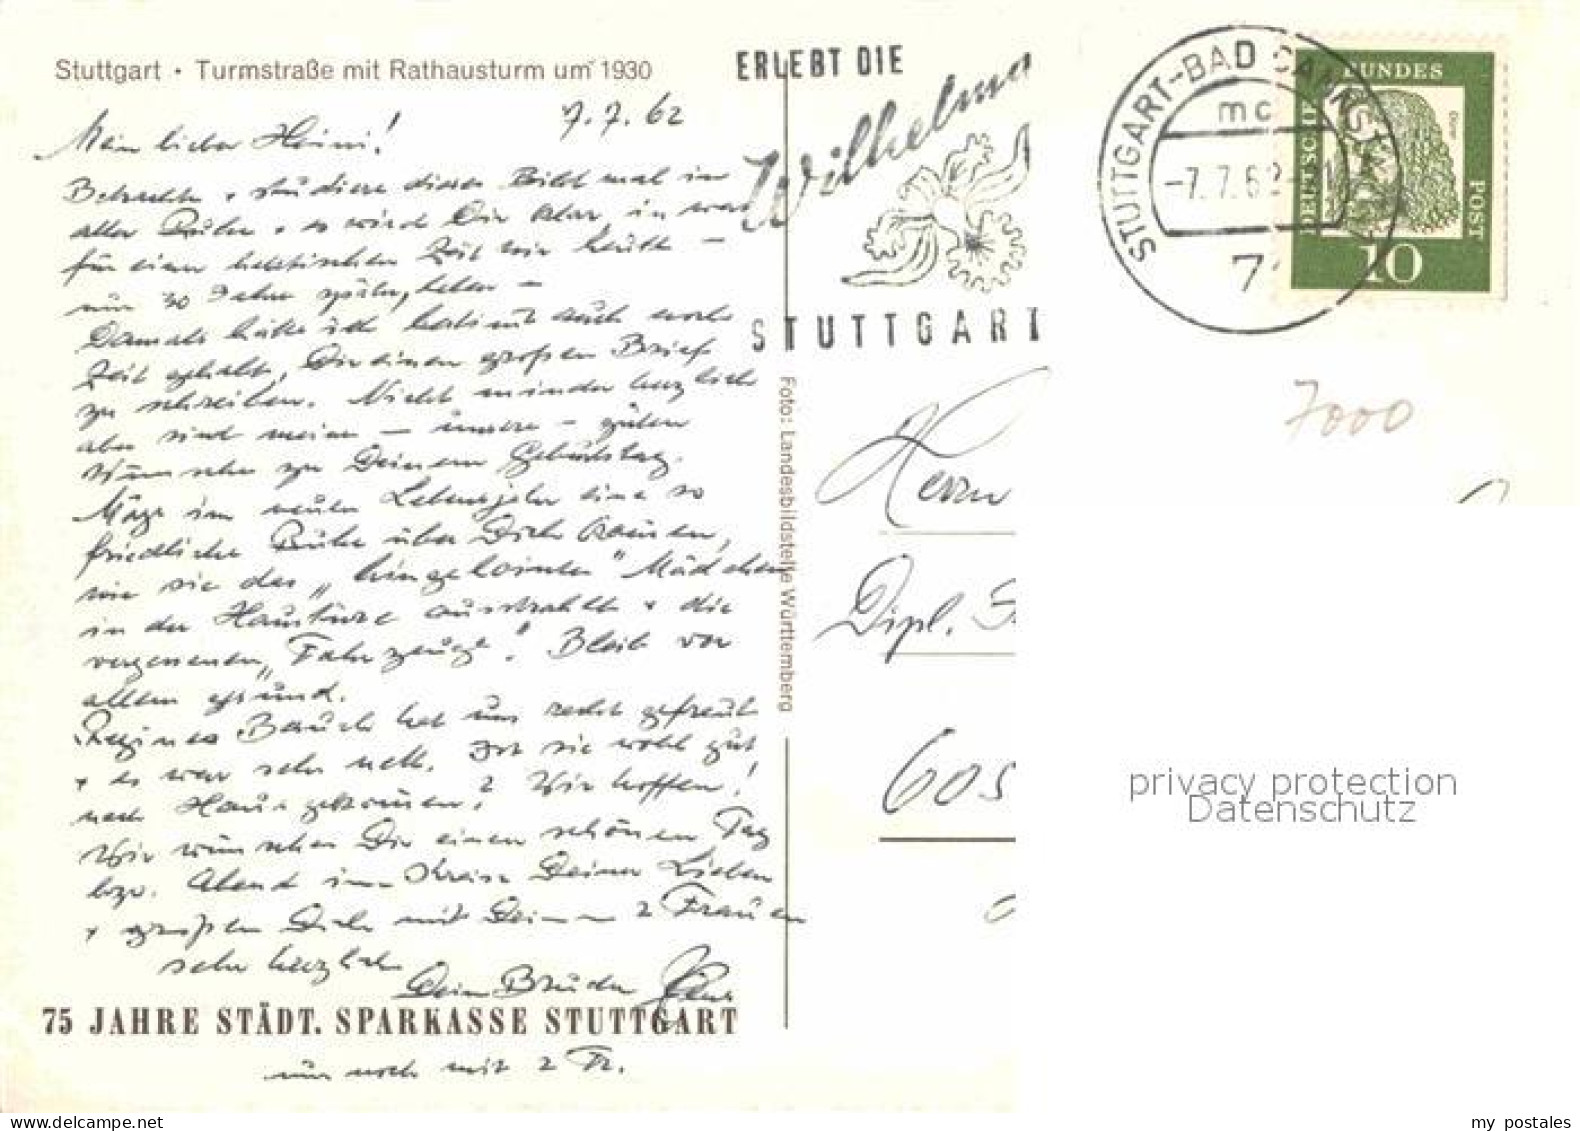 Stuttgart · Turmstraße mit Rathausturm um 1930
7. 7. 62
Mein lieber Heini!
Betrachte + studiere dieses Bild mal in
aller Ruhe + es wird Dir klar, in was
für einer hektischen Zeit wir heute –
nur 30 Jahre später, leben –
Damals hätte ich bestimmt auch noch
Zeit gehabt, Dir einen großen Brief
zu schreiben. Nicht minder herzlich
aber sind meine – unsere – guten
Wünsche zu Deinem Geburtstag.
Möge im neuen Lebensjahr eine so
friedliche Ruhe über Dich kommen,
wie sie das „ Mädchen
in der Haustüre ausstrahlt + die
vergessenen „Fahrzeuge“. Bleib vor
allem gesund.
Regines Besuch hat uns recht gefreut
+ es war sehr nett. Ist sie wohl gut
nach Hause gekommen? Wir hoffen!
Wir wünschen Dir einen schönen Tag
bzw. Abend im Kreise Deiner Lieben
+ grüßen Dich mit Deinen 2 Frauen
sehr herzlich
Dein Bruder
75 JAHRE STÄDT. SPARKASSE STUTTGART
nur noch mit 2 Fr.
Foto: Landesbildstelle Württemberg
ERLEBT DIE
Wilhelma
STUTTGART
STUTTGART-BAD CANNSTATT
mc
-7.7.62-
7
DEUTSCHE
BUNDES
POST
Dürer
10
7000
Herrn
Dipl.
605
privacy protection
Datenschutz
my postales